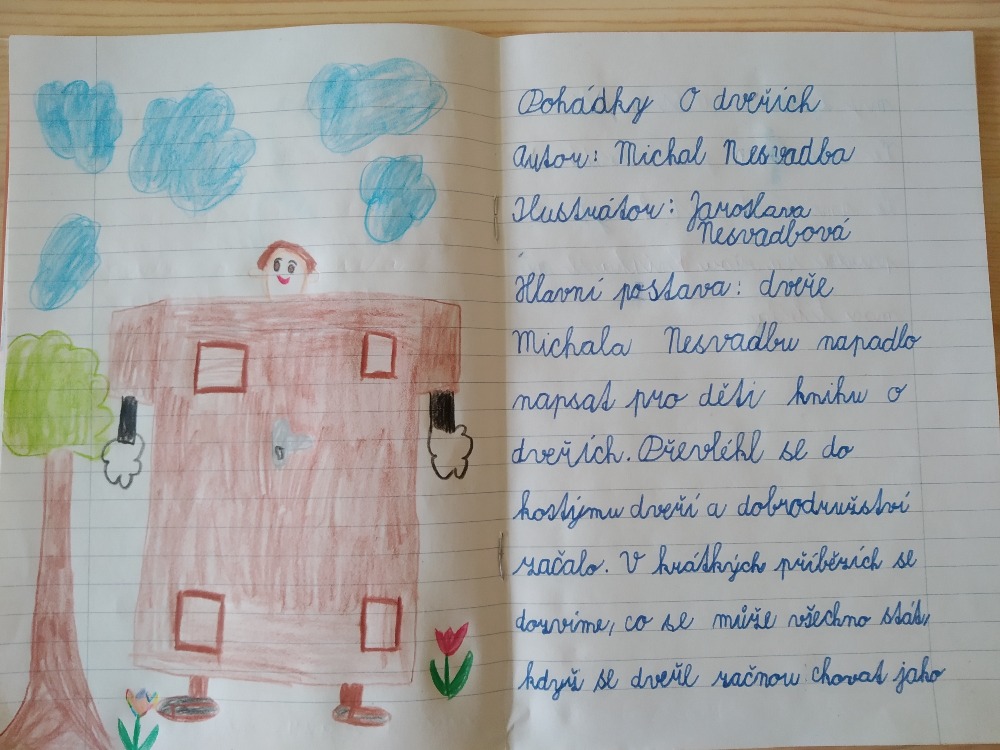 Pohádky O dveřích
Autor: Michal Nesvadba
Ilustrátor: Jaroslava
Nesvadbová
Hlavní postava: dveře
Michala Nesvadbu napadlo
napsat pro děti knihu o
dveřích. Převlékl se do
kostýmu dveří a dobrodružství
začalo. V krátkých příbězích se
dozvíme, co se může všechno stát,
když se dveře začnou chovat jako